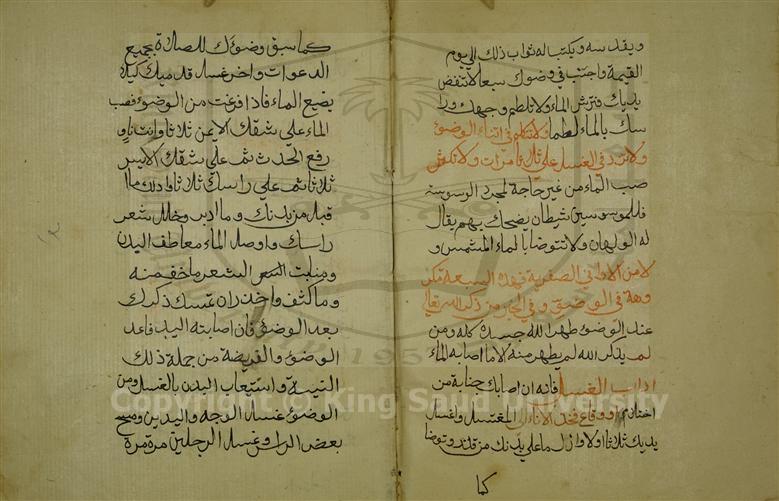 ويقدسه ويكتب له ثواب ذلك الي يوم
القيمة واجتنب في وضوك سبعا لا تنفض
يديك فترش الماء ولا تلطم وجهك ورا
سك بالماء لطما ولا تتكلم في اثناء الوضوء
ولا تزد في الغسل علي ثلاث مرات ولا تكثر
صب الماء من غير حاجة لمجرد الوسوسة
فللموسوسين شيطان يضحك بهم يقال
له الولهان ولا تتوضا بالماء المشمس و
لا من الاواني الصفرية فهذه السبعة مكر
وهة في الوضوء وفي الخبر من ذكر الله تعالي
عند الوضوء طهر الله جسده كله ومن
لم يذكر الله لم يطهر منه الا ما اصابه الماء
اداب الغسل فانه ان اصابك جنابة من
احتلام او وقاع فخذ الاناء الي المغتسل واغسل
يديك ثلاثا اولا وازل ما علي بدنك من قذر وتوضا
كما
كما سبق وضوءك للصلاة بجميع
الدعوات واخر غسل قدميك كيلا
يضيع الماء فاذا فرغت من الوضوء فصب
الماء علي شقك الايمن ثلاثا وانت ناو
رفع الحدث ثم علي شقك الايسر
ثلاثا ثم علي راسك ثلاثا وادلك ما
اقبل من بدنك وما ادبر وخلل شعر
راسك واوصل الماء معاطف البدن
ومنابت الشعر ما خف منه
وما كثف واحذر ان تمس ذكرك
بعد الوضوء فان اصابته اليد فاعد
الوضوء والفريضة من جملة ذلك
النية واستيعاب البدن بالغسل ومن
الوضوء غسل الوجه واليدين ومسح
بعض الراس وغسل الرجلين مرة مرة
Copyright © King Saud University
1957